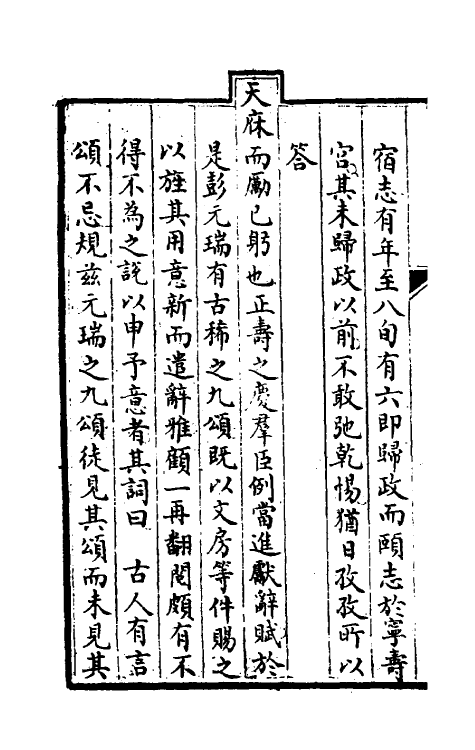 宿志有年至八旬有六即歸政而頤志於寧壽
宮其未歸政以前不敢弛乾惕猶日孜孜所以
答
天庥而勵己躬也正壽之慶羣臣例當進獻辭賦於
是彭元瑞有古稀之九頌既以文房等件賜之
以旌其用意新而遣辭雅顧一再翻閱頗有不
得不為之說以申予意者其詞曰　古人有言
頌不忌規茲元瑞之九頌徒見其頌而未見其